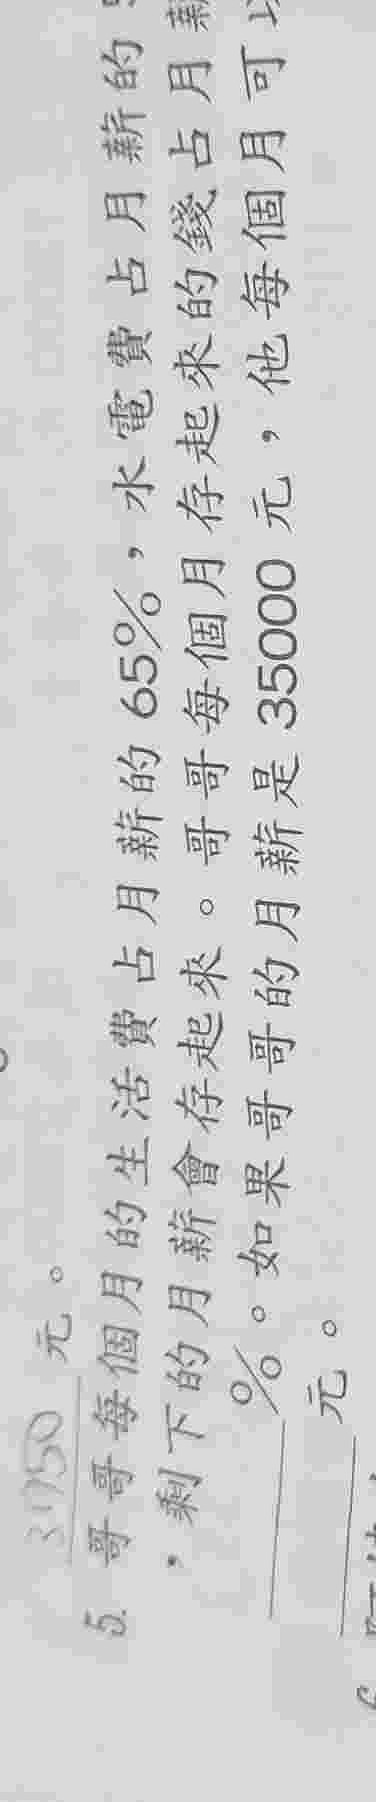 31150 元。
5. 哥哥每個月的生活費占月薪的 65%，水電費占月薪的
，剩下的月薪會存起來。哥哥每個月存起來的錢占月薪
%。如果哥哥的月薪是 35000 元，他每個月可以
元。